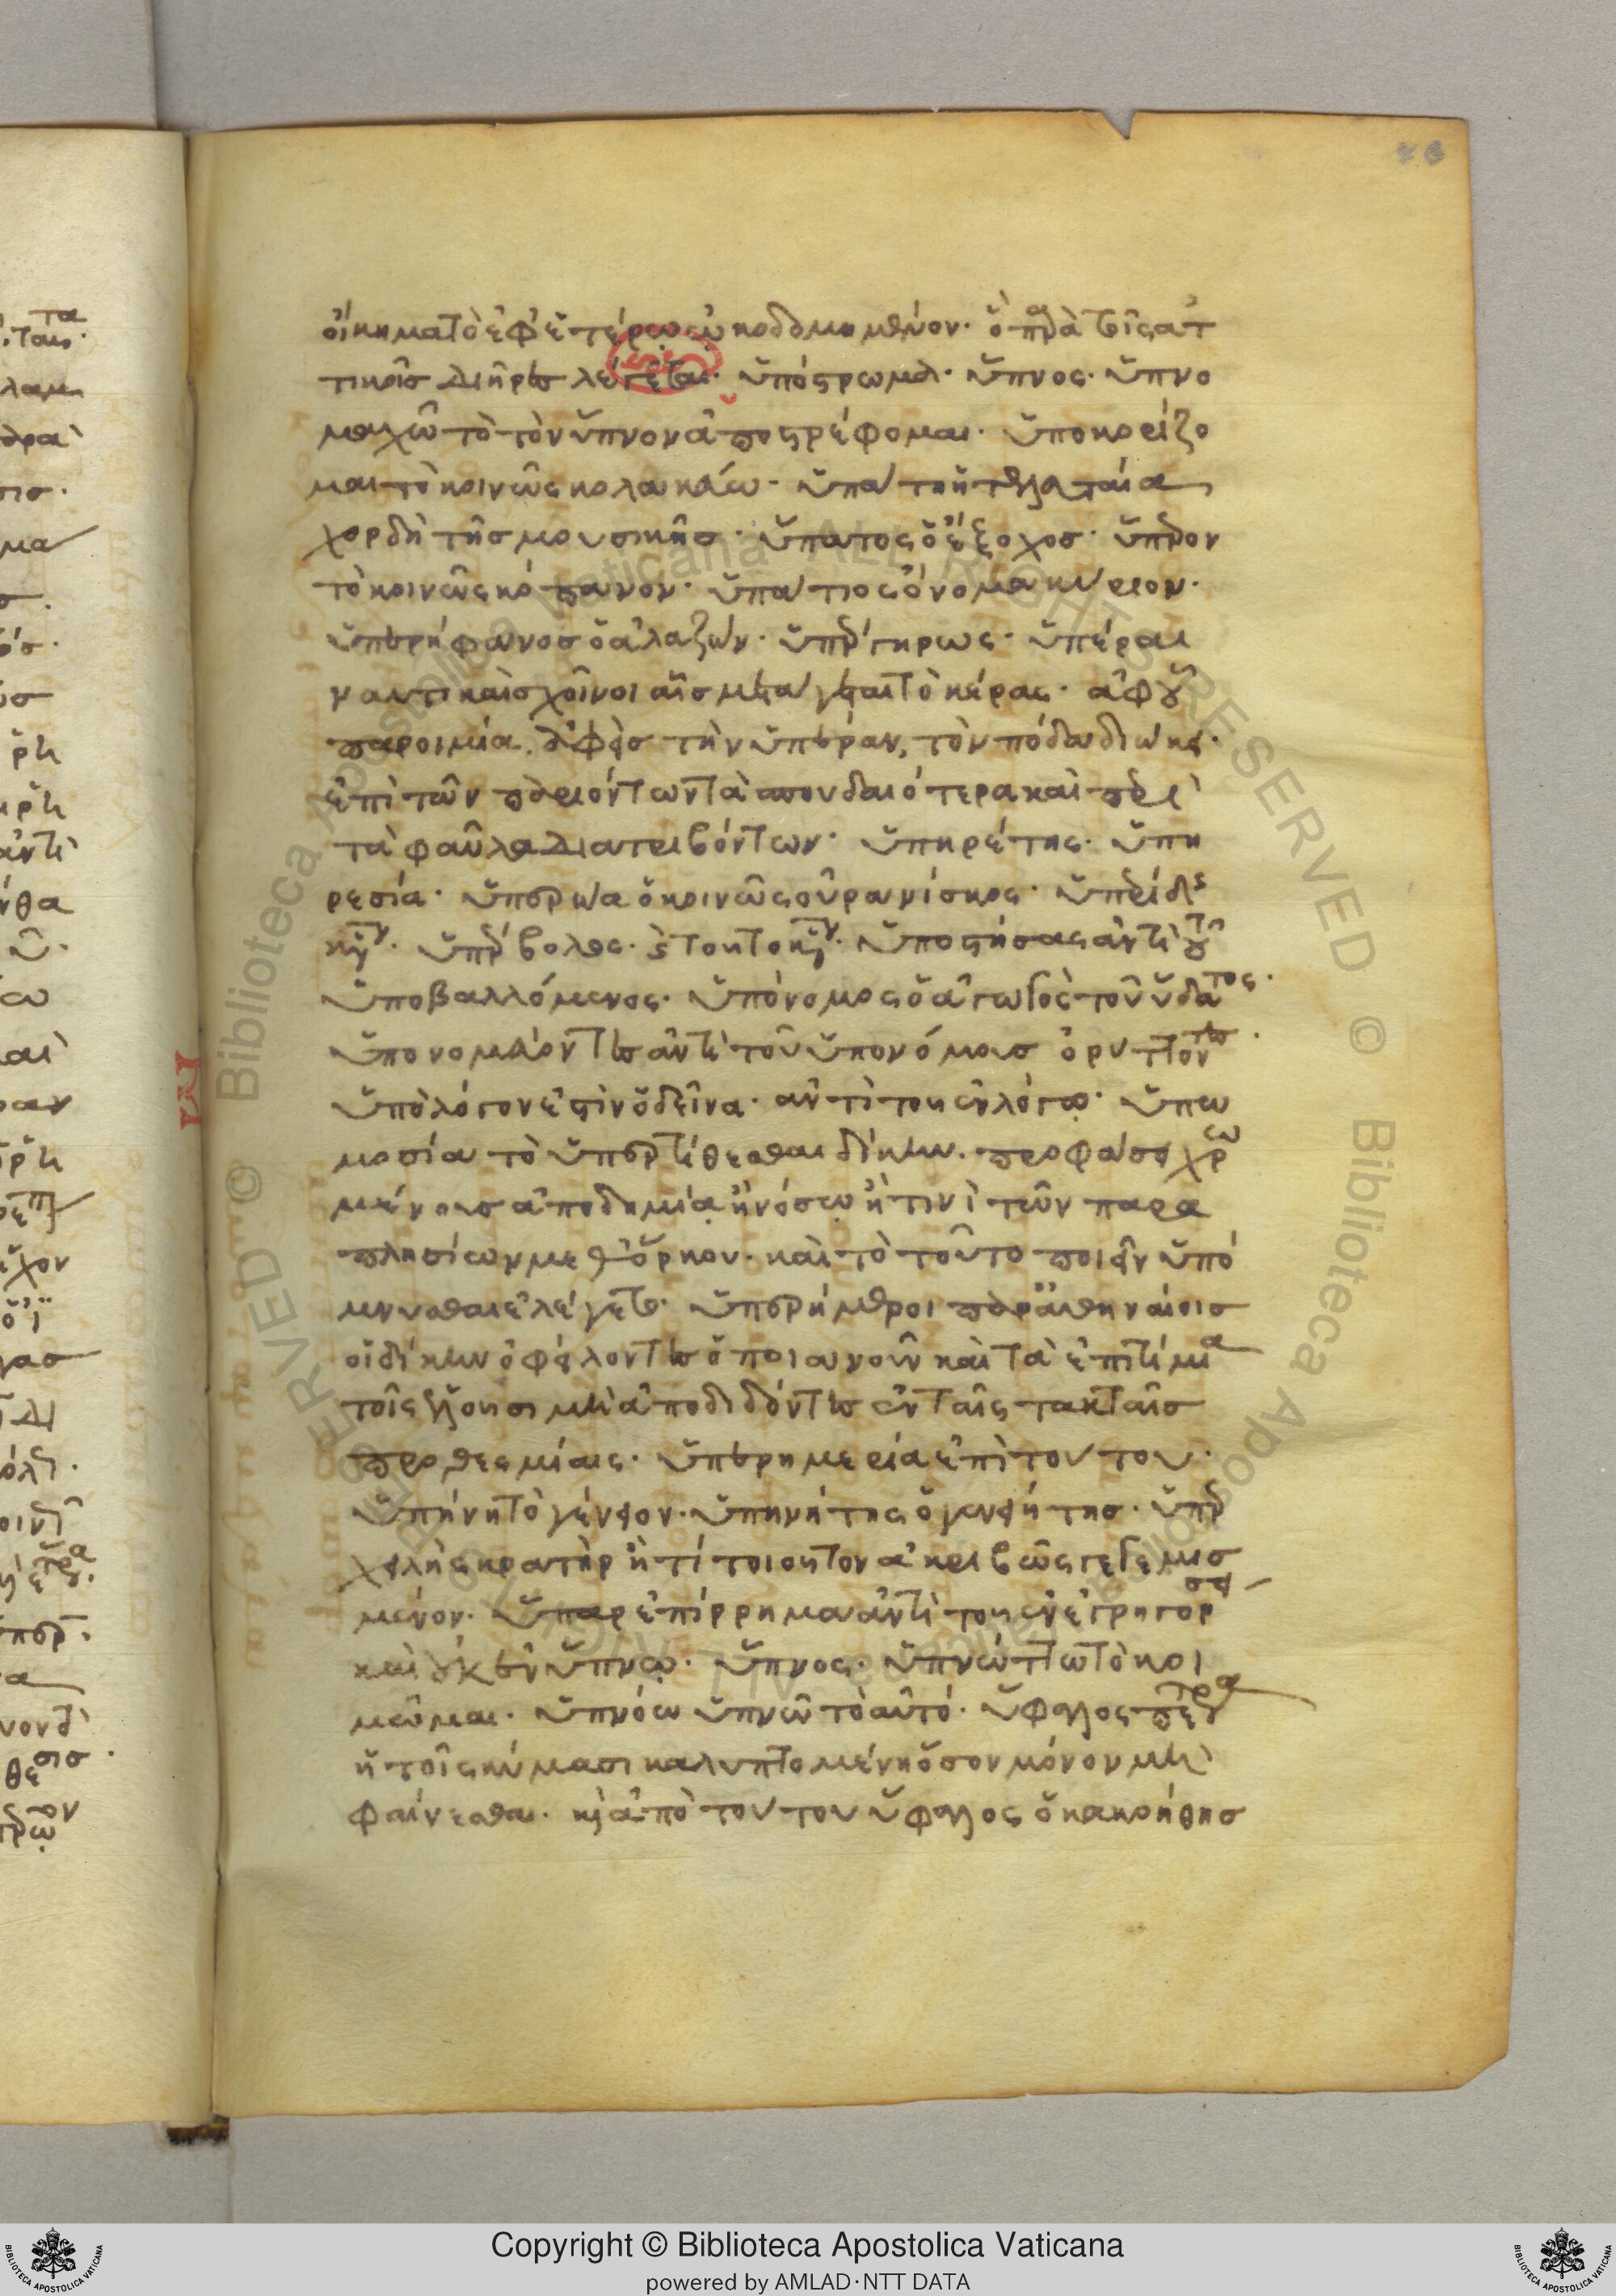 οἴκημα τὸ ἐφ' ἑτέρω ὠκοδομημένον. ὃ παρὰ τοῖς ἀτ
τικοῖς διῆρες λέγεται. ὑπόστρωμα. ὕπνος. ὑπνο
μαχῶ τὸ τὸν ὕπνον ἀποστρέφομαι. ὑποκορίζο
μαι τὸ κοινῶς κολακεύω. ὑπάτη ἡ τελευταία
χορδὴ τῆς μουσικῆς. ὕπατος ὁ ἔξοχος. ὕπερον
τὸ κοινῶς κόπανον. ὑπάτιος ὄνομα κύριον.
ὑπερήφανος ὁ ἀλαζών. ὑπέργηρως. ὑπέραι
ναυτικαὶ σχοῖνοι αἷς μετάγεται τὸ κέρας. ἀφ' οὗ
παροιμία, ἀφεὶς τὴν ὑπέραν, τὸν πόδα διώκει.
ἐπὶ τῶν παριόντων τὰ σπουδαιότερα καὶ περὶ
τὰ φαῦλα διατριβόντων. ὑπηρέτης. ὑπη
ρεσία. ὑπερῶα ὁ κοινῶς οὐρανίσκος.
ὑποστήσας ἀντὶ τοῦ
ὑποβαλλόμενος. ὑπόνομος ὁ ἀγωγὸς τοῦ ὕδατος.
ὑπονομεύοντες ἀντὶ τοῦ ὑπονόμους ὀρύττοντες.
ὑπόλογόν ἐστιν ὁ δεῖνα. ἀντὶ τοῦ ἐν λόγω. ὑπω
μοσία τὸ ὑπερτίθεσθαι δίκην. προφάσει χρω
μένους ἀποδημία ἢ νόσω ἤ τινι τῶν παρα
πλησίων μεθ' ὅρκον. καὶ τὸ τοῦτο ποιεῖν ὑπό
μνυσθαι ἐλέγετο. ὑπερήμεροι παρ' ἀθηναίοις
οἱ δίκην ὀφείλοντες ὁποιανοῦν καὶ τὰ ἐπιτίμια
τοῖς ἑλοῦσι μὴ ἀποδιδόντες ἐν ταῖς τακταῖς
προθεσμίαις. ὑπερημερία ἐπὶ τούτου.
ὑπήνη τὸ γένειον. ὑπηνήτης ὁ γενειήτης. ὑπερ
χειλὴς κρατὴρ ἤ τι τοιοῦτον ἀκριβῶς γεγεμισ
μένον. ὕπαρ ἐπίρρημα ἀντὶ τοῦ ἐν ἐγρηγόρσει
καὶ οὐκ ἐν ὕπνω. ὕπνος. ὑπνώττω τὸ κοι
μῶμαι. ὑπνόω ὑπνῶ τὸ αὐτό. ὕφαλος πέτρα
ἡ τοῖς κύμασι καλυπτομένη ὅσον μόνον μὴ
φαίνεσθαι. καὶ ἀπὸ τούτου ὕφαλος ὁ κακοήθης
Copyright © Biblioteca Apostolica Vaticana
powered by AMLAD·NTT DATA